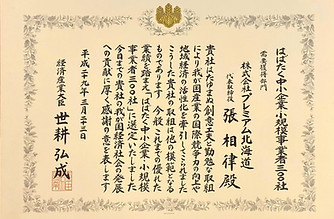 はばたく中小企業・小規模事業者三〇〇社
需要獲得部門
株式会社プレミアム北海道
代表取締役 張 相律 殿
貴社はたゆまぬ創意工夫と勤勉な取組
により我が国産業の国際競争力の向上や
地域経済の活性化を牽引してこられました
こうした貴社の取組は他の模範となる
ものであります 今般 これまでの優れた
業績を踏まえ「はばたく中小企業・小規模
事業者三〇〇社」に選定いたしました
今日までの貴社の我が国経済社会の発展
への貢献に厚く感謝の意を表します
平成二十九年三月二十三日
経済産業大臣 世耕弘成